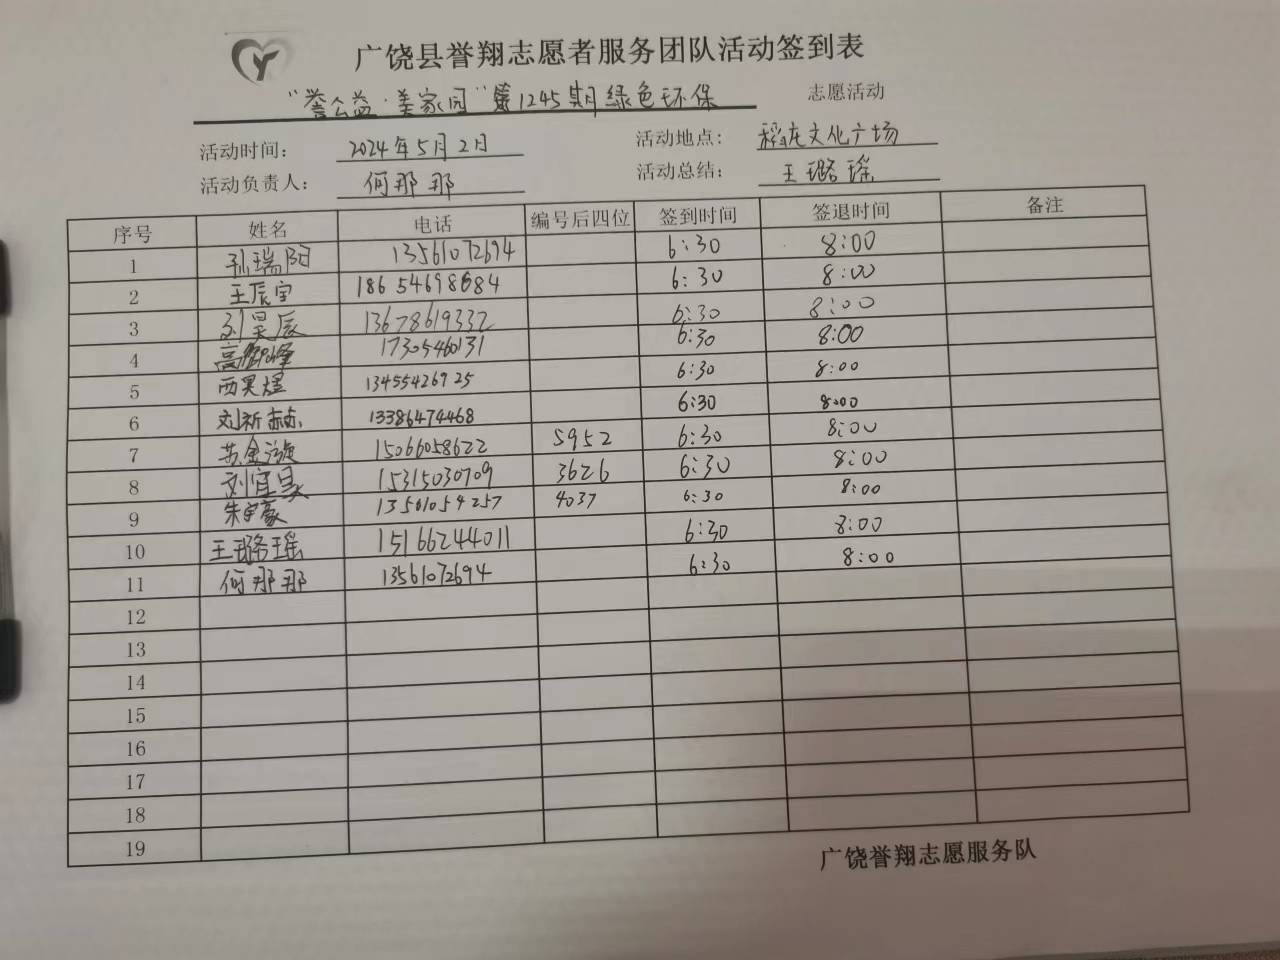 广饶县誉翔志愿者服务团队活动签到表
“誉公益·美家园”第1245期绿色环保 志愿活动
活动时间： 2024年5月2日 活动地点: 文化广场
活动负责人： 何那那 活动总结： 王璐瑶
序号 姓名 电话 编号后四位 签到时间 签退时间 备注
1 孙瑞阳 13561072694 6:30 8:00
2 王辰宇 18654698684 6:30 8:00
3 刘昊辰 13678619332 6:30 8:00
4 高 峰 17305460131 6:30 8:00
5 西昊煜 13455426925 6:30 8:00
6 刘祈赫 13386474468 6:30 8:00
7 苏金漩 15066058622 5952 6:30 8:00
8 刘宜昊 15315030709 3626 6:30 8:00
9 朱宇豪 13561054257 4037 6:30 8:00
10 王璐瑶 15166244011 6:30 8:00
11 何那那 13561072694 6:30 8:00
12
13
14
15
16
17
18
19
广饶誉翔志愿服务队